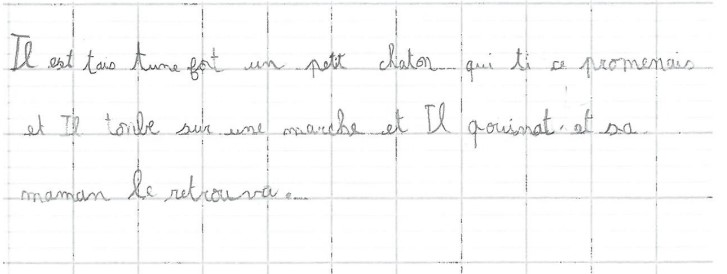 Il est tais tune fot un petit chaton qui ti ce promenais
et Il tonbe sur une marche et Il gouinat. et sa
maman le retrouva...